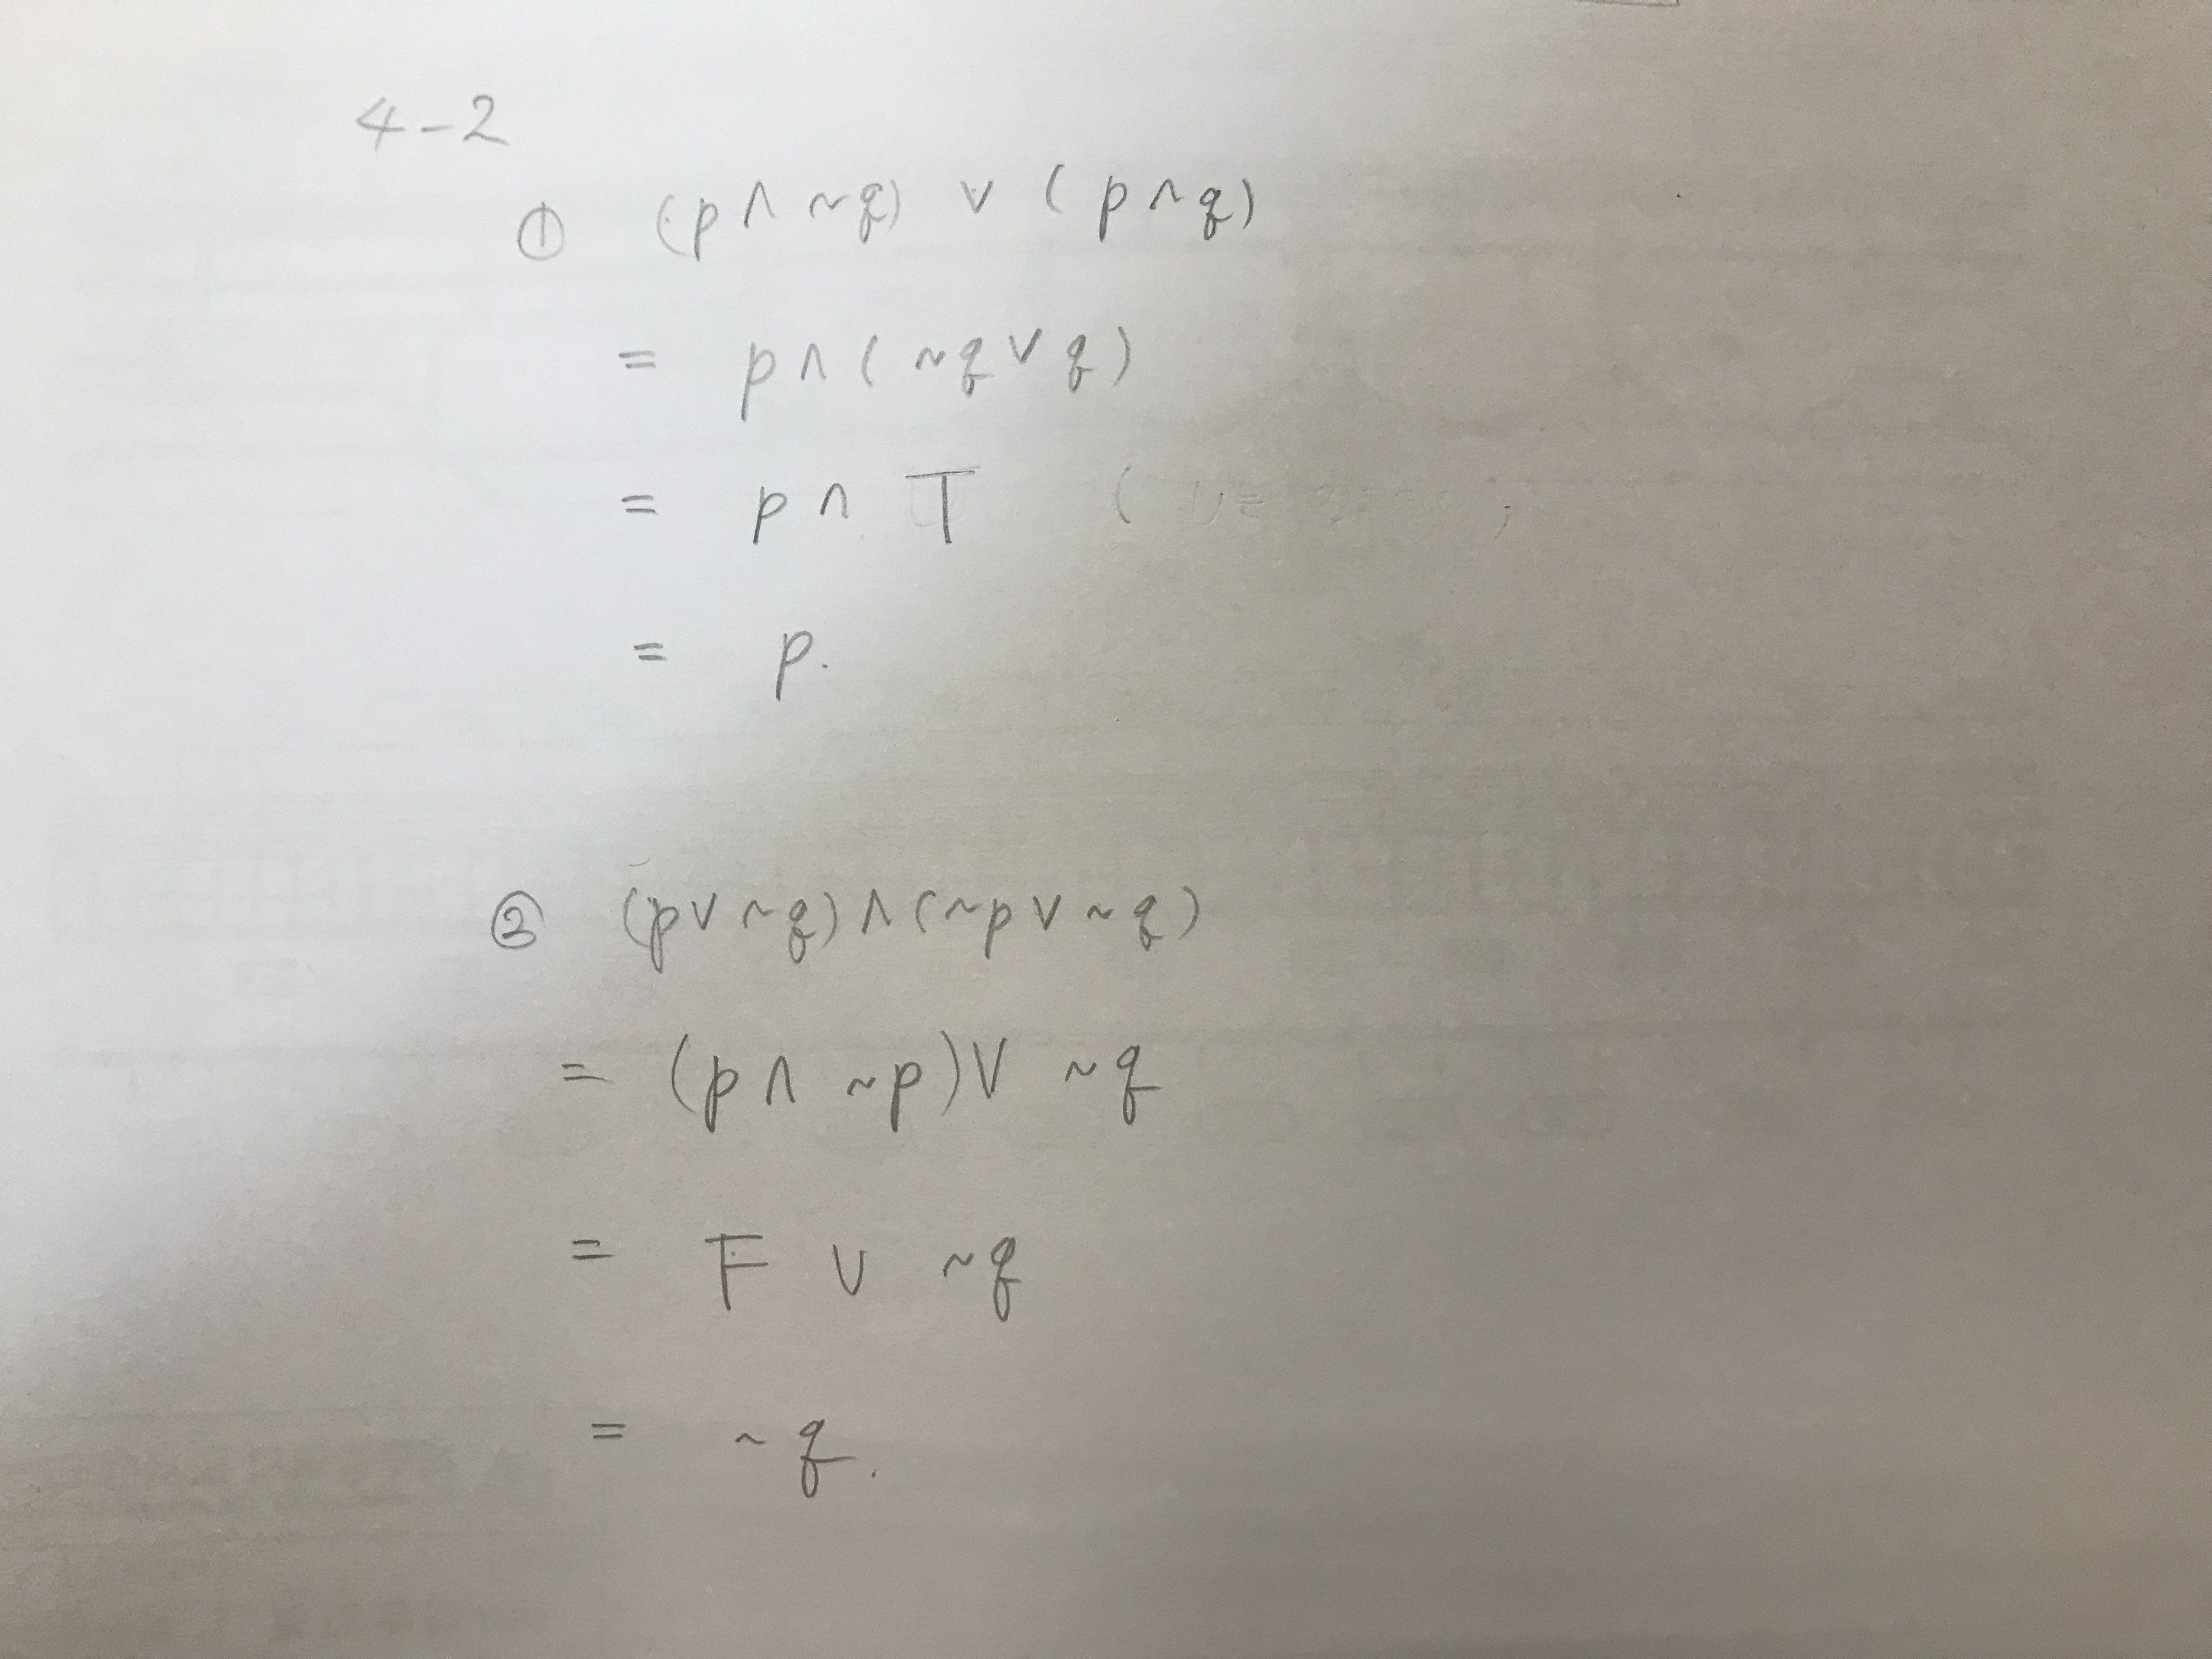 4-2
① (p ∧ ~q) ∨ (p ∧ q)
= p ∧ (~q ∨ q)
= p ∧ T
= p.
② (p ∨ ~q) ∧ (~p ∨ ~q)
= (p ∧ ~p) ∨ ~q
= F ∨ ~q
= ~q.